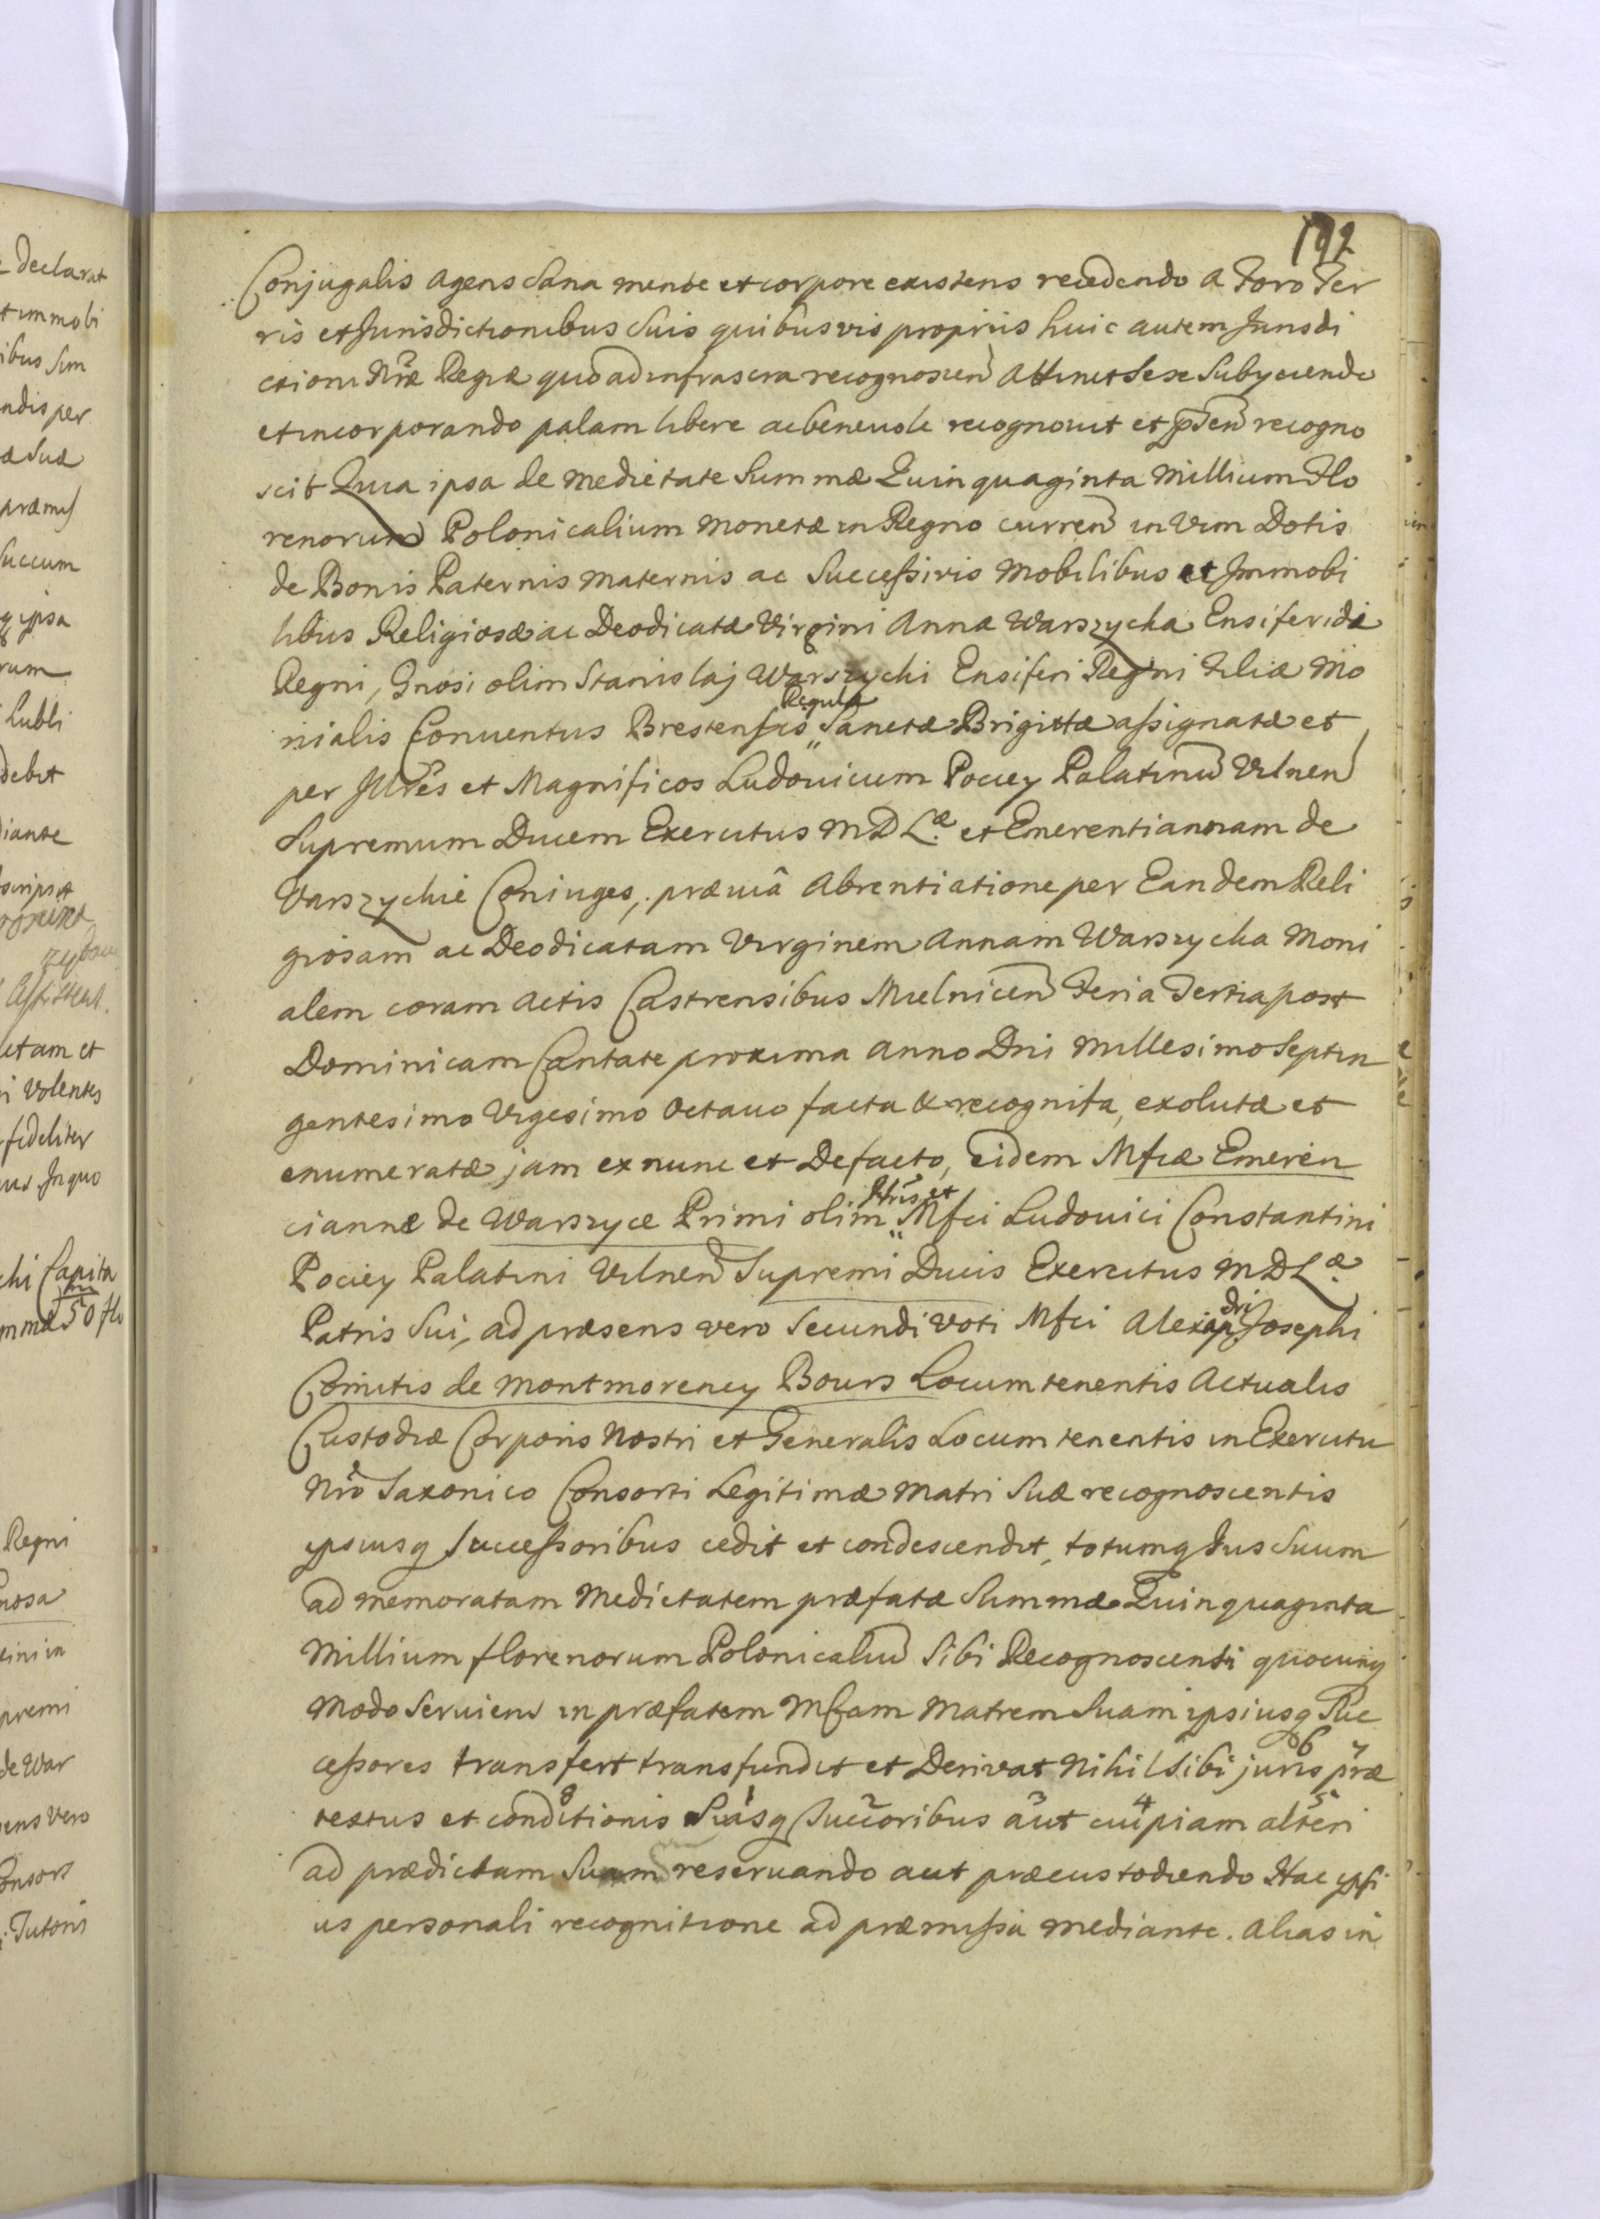 192
Conjugalis agens sana mente et corpore existens recedendo a Foro Ter
ris et Jurisdictionibus suis quibusvis proprijs huic autem Jurisdi
ctioni Nrae Regiae quo ad infrascra recognoscen attinet sese subyciendo
et incorporando palam libere ac benevole recognovit et pnten recogno
scit Quia ipsa de medietate summae Quinquaginta Millium Flo
renorum Polonicalium monetae in Regno curren in vim Dotis
de Bonis Paternis maternis ac Successivis mobilibus et Immobi
libus Religiosae ac Deodicatae Virgini Anna Warszycka Ensiferidae
Regni, Gnosi olim Stanislaj Warszycki Ensiferi Regni Filiae Mo
nialis Conventus Brestensis Regula Sanctae Brigittae assignatae et
per Illres et Magnificos Ludovicum Pociey Palatinum Vilnen
Supremum Ducem Exercitus M D L.ae et Emerentiannam de
Varszyckie Coniuges, praevia Abrentiatione per Eandem Reli
giosam ac Deodicatam Virginem Annam Warszycka Moni
alem coram Actis Castrensibus Mielnicen Feria Tertia post
Dominicam Cantate proxima Anno Dni Millesimo Septin
gentesimo Vigesimo Octavo facta & recognita, exolutae et
enumeratae jam ex nunc et Defacto, eidem Mfcae Emeren
ciannae de Warszyce Primi olim Illris et Mfci Ludovici Constantini
Pociey Palatini Vilnen Supremi Ducis Exercitus M D L.ae
Patris Sui, ad praesens vero Secundi voti Mfci Alexandri Josephi
Comitis de Montmorency Bours Locumtenentis Actualis
Custodiae Corporis Nostri et Generalis Locumtenentis in Exercitu
Nro Saxonico Consorti Legitimae Matri Suae recognoscentis
ipsiusq Successoribus cedit et condescendit, totumq Jus Suum
ad memoratam Medietatem praefatae Summae Quinquaginta
Millium florenorum Polonicalium Sibi Recognoscenti quocunq
modo serviens in praefatem Mfcam Matrem Suam ipsiusq Suc
cessores transfert transfundit et Derivat Nihil sibi juris 6 prae 7
textus et conditionis 8 Suisq 1 Succoribus 2 aut 3 cuipiam 4 alteri 5
ad praedictam Suam reservando aut praecustodiendo Hac ipsi
us personali recognitione ad praemissa mediante. Alias in